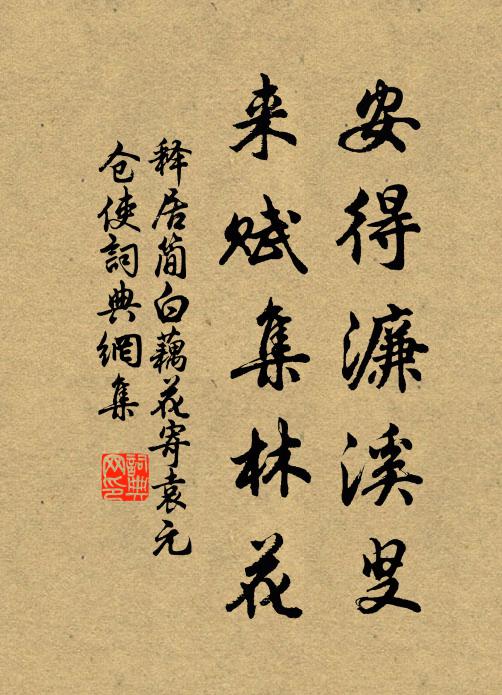 安得濂溪叟
来赋集林花
释居简白藕花寄袁元
仓使詞典網集
詞典
网印